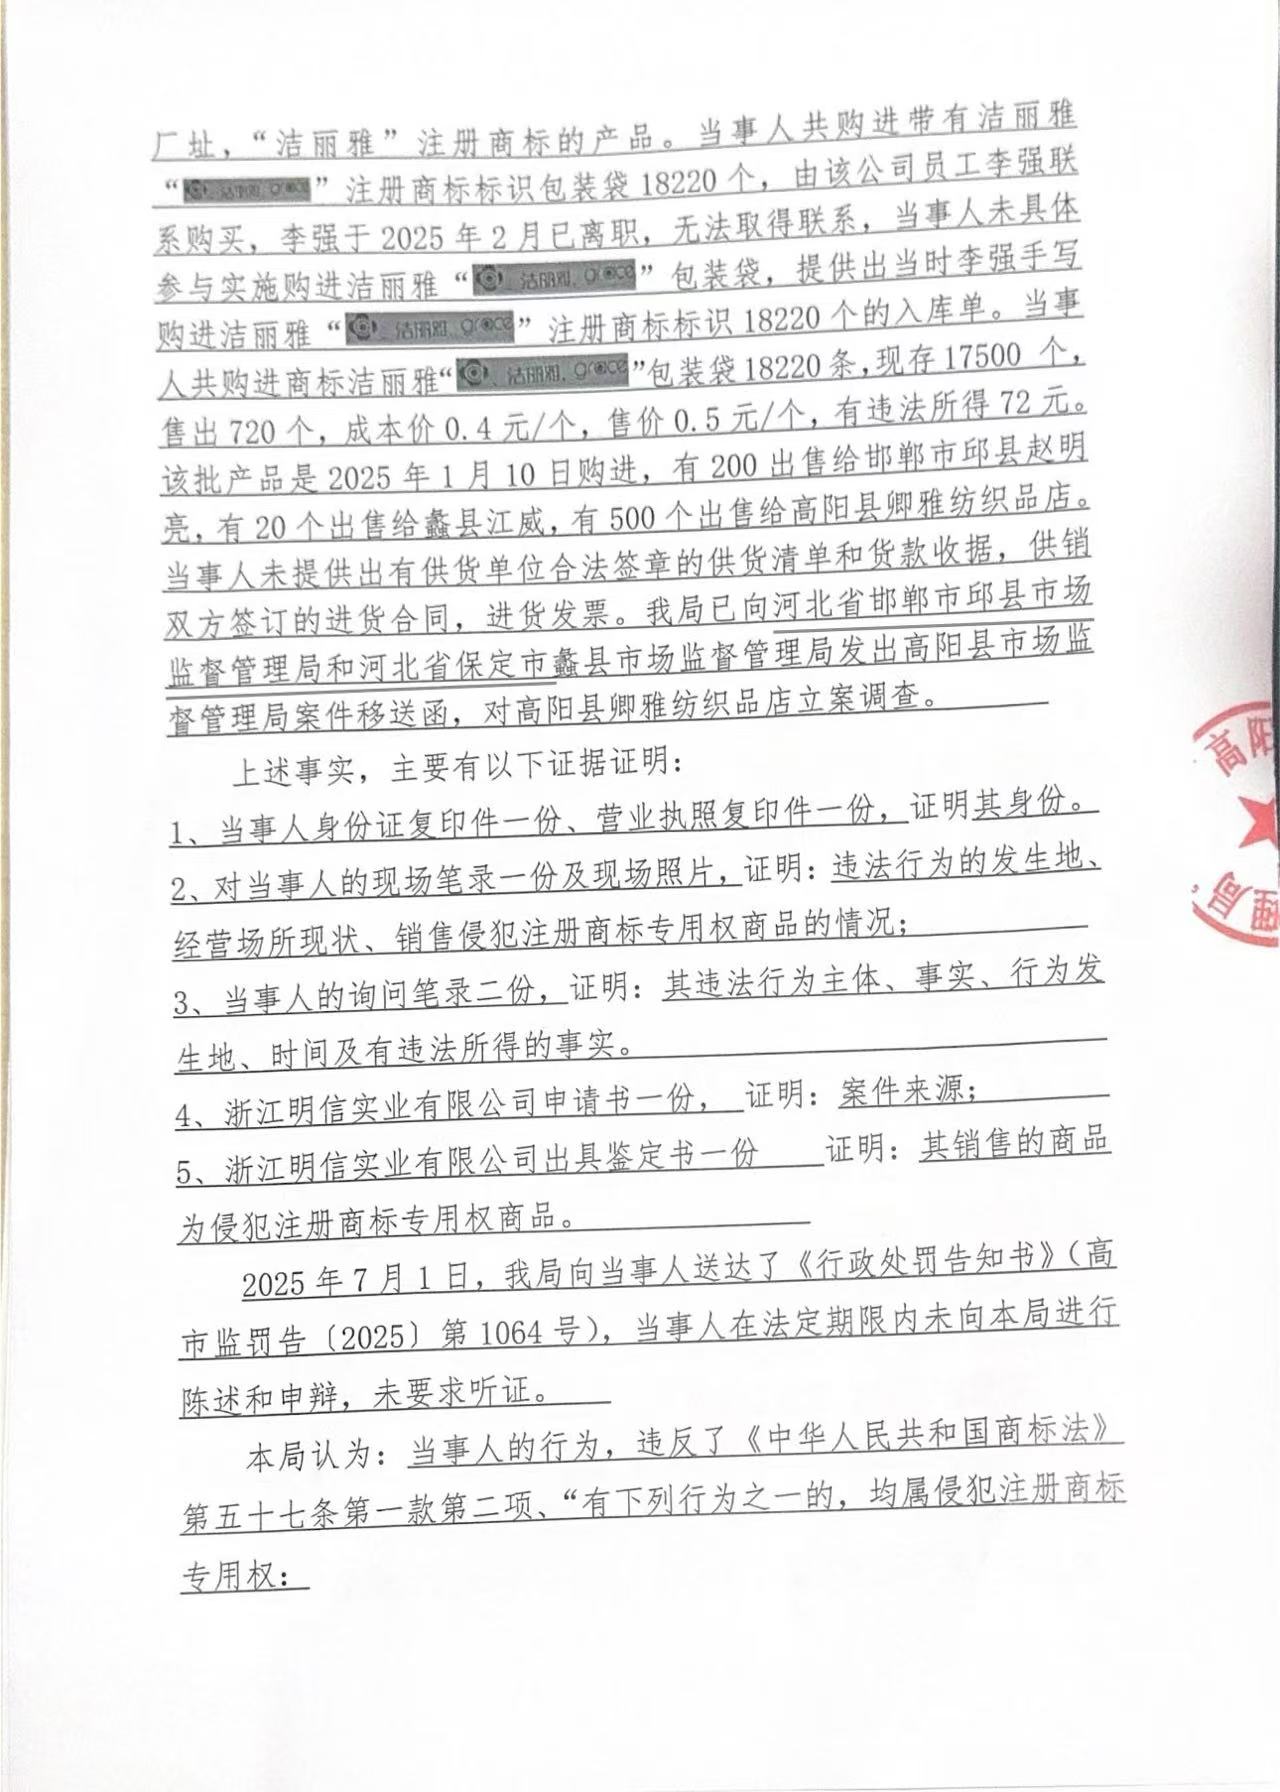 厂址，“洁丽雅”注册商标的产品。当事人共购进带有洁丽雅
“洁丽雅 grace”注册商标标识包装袋 18220 个，由该公司员工李强联
系购买，李强于 2025 年 2 月已离职，无法取得联系，当事人未具体
参与实施购进洁丽雅“洁丽雅. grace”包装袋，提供出当时李强手写
购进洁丽雅“洁丽雅. grace”注册商标标识 18220 个的入库单。当事
人共购进商标洁丽雅“洁丽雅. grace”包装袋 18220 条，现存 17500 个，
售出 720 个，成本价 0.4 元/个，售价 0.5 元/个，有违法所得 72 元。
该批产品是 2025 年 1 月 10 日购进，有 200 出售给邯郸市邱县赵明
亮，有 20 个出售给蠡县江威，有 500 个出售给高阳县卿雅纺织品店。
当事人未提供出有供货单位合法签章的供货清单和货款收据，供销
双方签订的进货合同，进货发票。我局已向河北省邯郸市邱县市场
监督管理局和河北省保定市蠡县市场监督管理局发出高阳县市场监
督管理局案件移送函，对高阳县卿雅纺织品店立案调查。
上述事实，主要有以下证据证明：
1、当事人身份证复印件一份、营业执照复印件一份，证明其身份。
2、对当事人的现场笔录一份及现场照片，证明：违法行为的发生地、
经营场所现状、销售侵犯注册商标专用权商品的情况；
3、当事人的询问笔录二份，证明：其违法行为主体、事实、行为发
生地、时间及有违法所得的事实。
4、浙江明信实业有限公司申请书一份， 证明：案件来源；
5、浙江明信实业有限公司出具鉴定书一份 证明：其销售的商品
为侵犯注册商标专用权商品。
2025 年 7 月 1 日，我局向当事人送达了《行政处罚告知书》（高
市监罚告〔2025〕第 1064 号），当事人在法定期限内未向本局进行
陈述和申辩，未要求听证。
本局认为：当事人的行为，违反了《中华人民共和国商标法》
第五十七条第一款第二项、“有下列行为之一的，均属侵犯注册商标
专用权：
高阳
理局